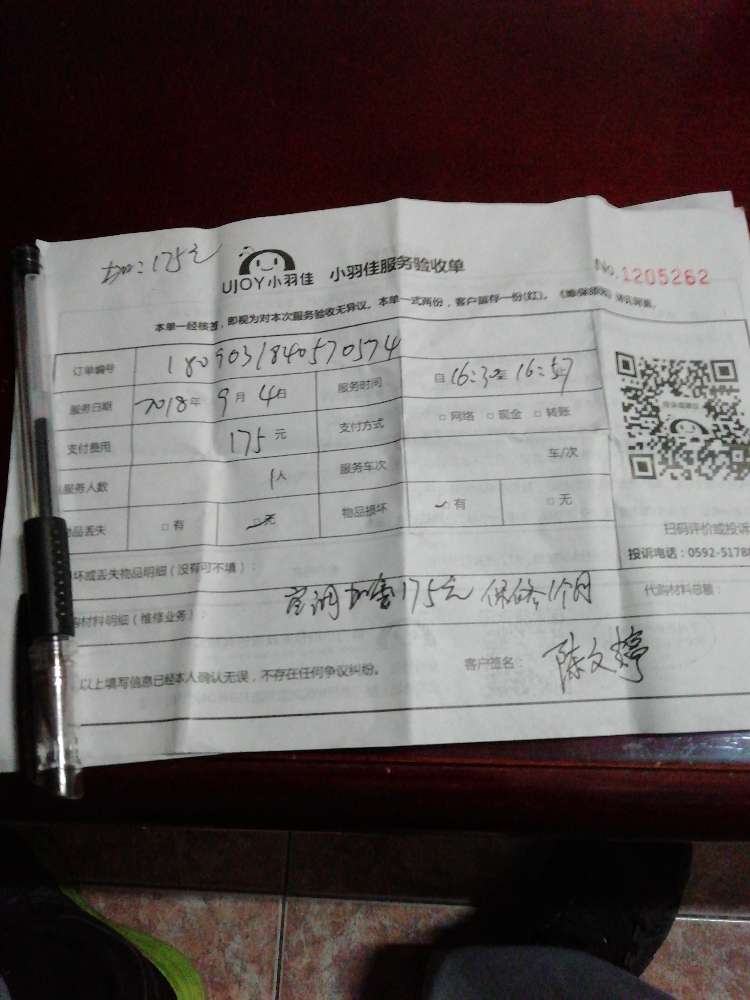 加：175元
UJOY小羽佳 小羽佳服务验收单 No.1205262
本单一经核签，即视为对本次服务验收无异议。本单一式两份，客户留存一份(红)。
订单编号 1809031840570574
服务日期 2018年 9月 4日 服务时间 自16:30至16:57止
支付费用 175元 支付方式 □网络 □现金 □转账
服务人数 1人 服务车次 车/次
物品丢失 □有 □无 物品损坏 □有 □无
扫码评价或投诉
投诉电话：0592-5178
坏或丢失物品明细（没有可不填）：
购材料明细（维修业务）： 空调加雪175元 保修1个月 代购材料总额：
以上填写信息已经本人确认无误，不存在任何争议纠纷。 客户签名： 陈文婷